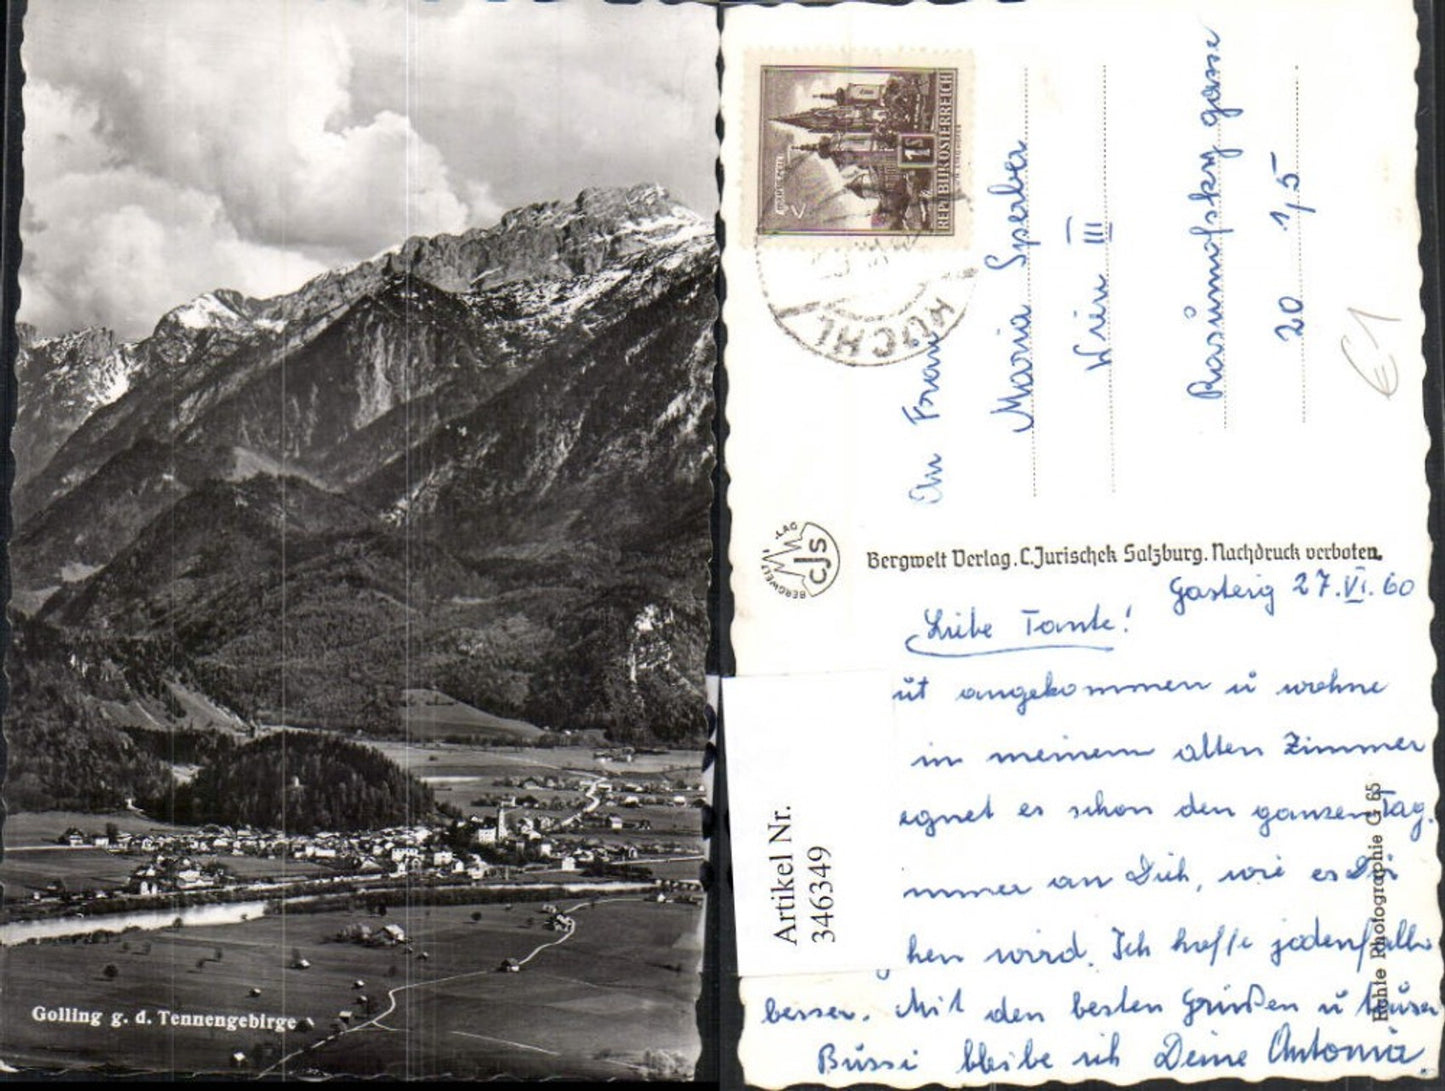 Golling g. d. Tennengebirge
1S
REPUBLIK ÖSTERREICH
KUCHL
An Frau
Maria Sperber
Wien III
Rasumofsky gasse
20 1/5
€1
BERGWELT
CJS
Bergwelt Verlag. C. Jurischek Salzburg. Nachdruck verboten.
Echte Photographie G 65
Artikel Nr.
346349
Gasteig 27.VI.60
Liebe Tante!
ut angekommen u wohne
in meinem alten Zimmer
egnet es schon den ganzen Tag.
mmer an Dich, wie es Dir
hen wird. Ich hoffe jedenfalls
besser. Mit den besten Grüßen u
Bussi bleibe ich Deine Antonia